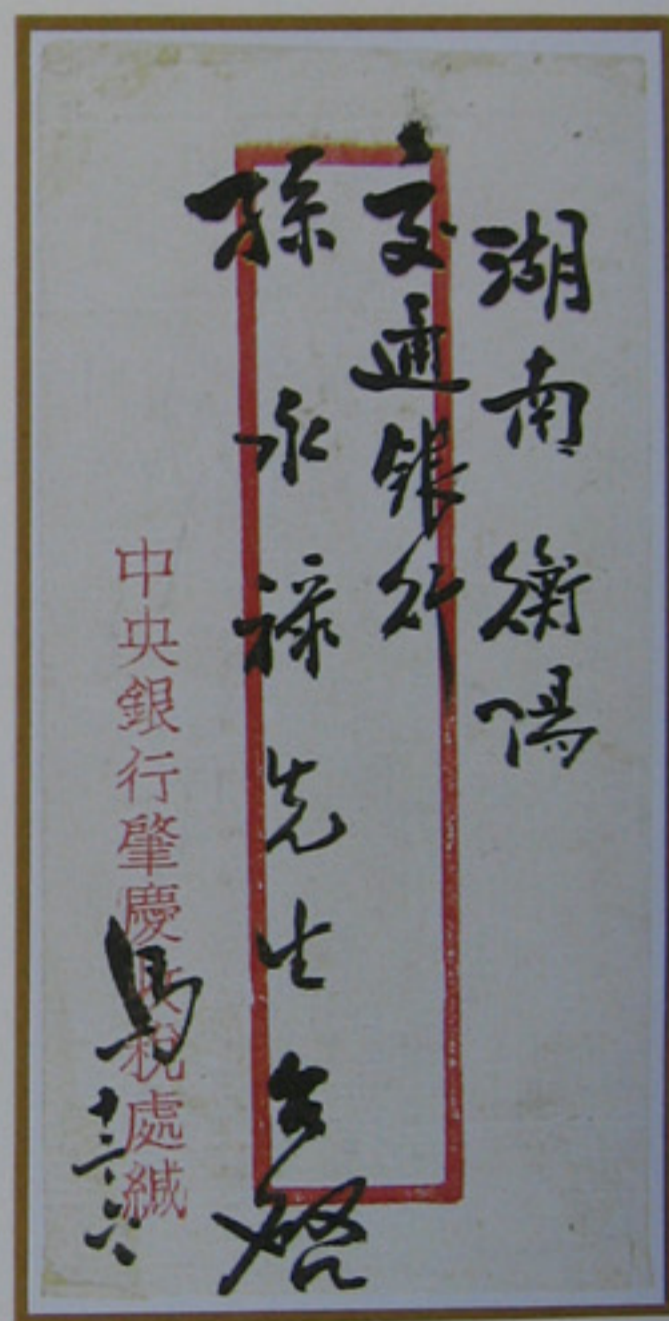 湖南衡陽
交通銀行
孫永祿先生台啓
中央銀行肇慶收稅處緘
馬
十二·六